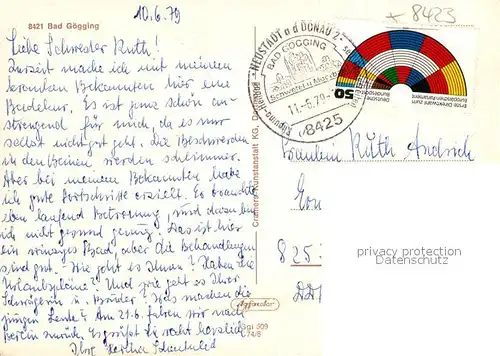 8421 Bad Gögging
10.6.79
8423
Liebe Schwester Ruth!
Zurzeit mache ich mit meinem
kranken Bekannten hier eine
Badekur. Es ist ganz schön an-
strengend für mich, da es mir
selbst nicht gut geht. Die Beschwerden
in den Beinen werden schlimmer.
Aber bei meinem Bekannten habe
ich gute Fortschritte erzielt. Er brauchte
eben laufend Betreuung und dazu bin
ich nicht gesund genug. Das ist hier
ein winziges Bad, aber die Behandlungen
sind gut. - Wie geht es Ihnen? Haben Sie
Urlaubspläne? Und wie geht es Ihrer
Schwägerin u. Bruder? Was machen die
jungen Leute? Am 21.6. fahren wir nach
Berlin zurück. Es grüßt Sie recht herzlich
Ihre Hertha
Cramers Kunstanstalt KG, Dortmund
NEUSTADT a d DONAU 2
BAD GÖGGING
11.-6.79.-
8425
50
Deutsche Bundespost
Erste Direktwahl zum Europäischen Parlament
Fräulein Ruth
825
DDR
Agfacolor
309
74/8
privacy protection
Datenschutz